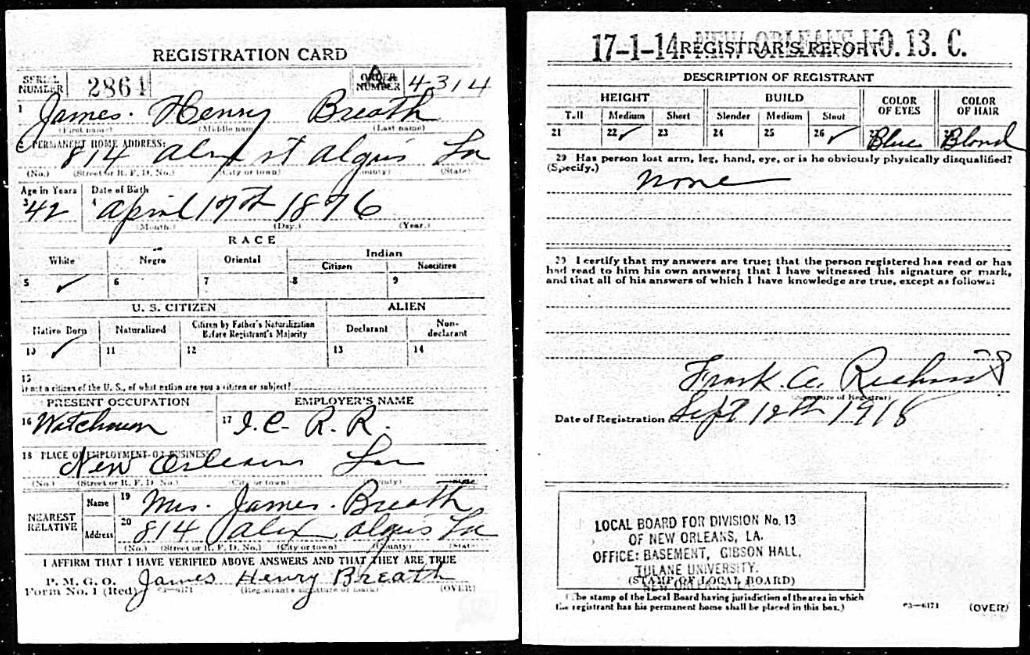 REGISTRATION CARD
SERIAL NUMBER 2864 ORDER NUMBER A 4314
1 James. Henry Breath
(First name) (Middle name) (Last name)
2 PERMANENT HOME ADDRESS:
814 Alex st algis La
(No.) (Street or R. F. D. No.) (City or town) (County) (State)
Age in Years Date of Birth
3 42 4 april 17th 1876
(Month.) (Day.) (Year.)
RACE
White Negro Oriental Indian
Citizen Noncitizen
5 ✓ 6 7 8 9
U. S. CITIZEN ALIEN
Native Born Naturalized Citizen by Father's Naturalization Before Registrant's Majority Declarant Non-declarant
10 ✓ 11 12 13 14
15
If not a citizen of the U. S., of what nation are you a citizen or subject?
PRESENT OCCUPATION EMPLOYER'S NAME
16 Watchman 17 I. C- R. R.
18 PLACE OF EMPLOYMENT OR BUSINESS:
New Orleans La
(No.) (Street or R. F. D. No.) (City or town) (County) (State)
NEAREST RELATIVE Name 19 Mrs. James. Breath
Address 20 814 alex algis La
(No.) (Street or R. F. D. No.) (City or town) (County) (State)
I AFFIRM THAT I HAVE VERIFIED ABOVE ANSWERS AND THAT THEY ARE TRUE
P. M. G. O.
Form No. 1 (Red) 03—6171 James Henry Breath
(Registrant's signature or mark) (OVER)
17-1-14 NEW ORLEANS NO. 13. C.
REGISTRAR'S REPORT
DESCRIPTION OF REGISTRANT
HEIGHT BUILD COLOR OF EYES COLOR OF HAIR
Tall Medium Short Slender Medium Stout
21 22 ✓ 23 24 25 26 ✓ Blue Blond
29 Has person lost arm, leg, hand, eye, or is he obviously physically disqualified?
(Specify.) none
30 I certify that my answers are true; that the person registered has read or has
had read to him his own answers; that I have witnessed his signature or mark,
and that all of his answers of which I have knowledge are true, except as follows:
Frank. A.
(Signature of Registrar)
Date of Registration Sept 12th 1918
LOCAL BOARD FOR DIVISION No. 13
OF NEW ORLEANS, LA.
OFFICE: BASEMENT, GIBSON HALL,
TULANE UNIVERSITY.
NEW ORLEANS
(STAMP OF LOCAL BOARD)
(The stamp of the Local Board having jurisdiction of the area in which
the registrant has his permanent home shall be placed in this box.)
03—6171 (OVER)